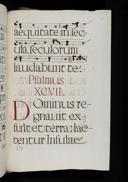 aequitate in sec
ula seculorum
laudabunt te.
Psalmus
XCVII.
Dominus re
gnauit ex
sultet terra: lae
tentur Insulae